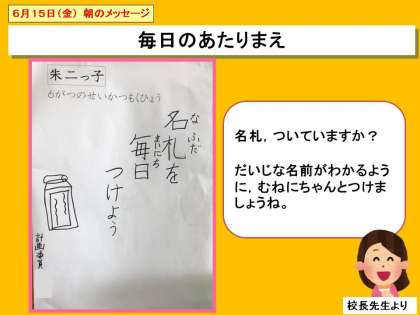 6月15日(金) 朝のメッセージ
毎日のあたりまえ
朱二っ子
6がつのせいかつもくひょう
なふだ
名札を
まいにち
毎日
つけよう
計画委員
名札，ついていますか？
だいじな名前がわかるよう
に，むねにちゃんとつけま
しょうね。
校長先生より